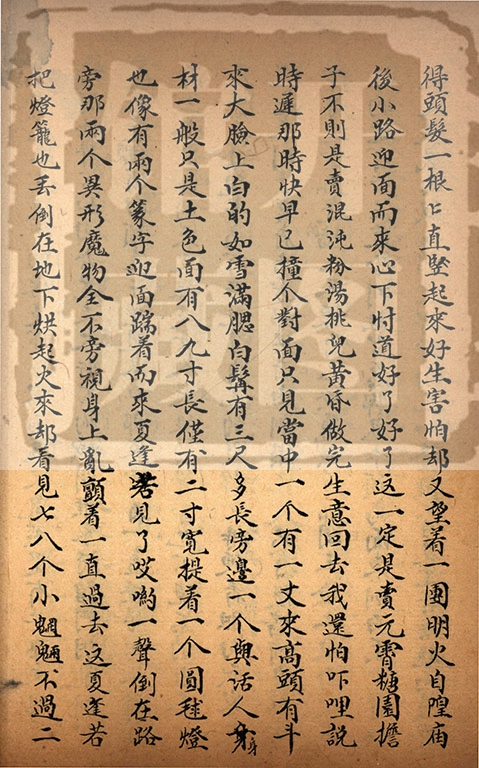 得頭髮一根〻直竪起來好生害怕却又望着一團明火自隍庙
後小路迎面而來心下忖道好了好了這一定是賣元霄糖圓擔
子不則是賣混沌粉湯挑兒黃昏做完生意回去我還怕吓哩說
時遲那時快早已撞个對面只見當中一个有一丈來高頭有斗
來大臉上白的如雪滿腮白髯有三尺多長旁邊一个與活人身
材一般只是土色面有八九寸長僅有二寸寬提着一个圓毬燈
也像有兩个篆字迎面踹着而來夏逢若見了哎喲一聲倒在路
旁那兩个異形魔物全不旁視身上亂顫着一直過去這夏逢若
把燈籠也丟倒在地下烘起火來却看見七八个小魍魎不過二